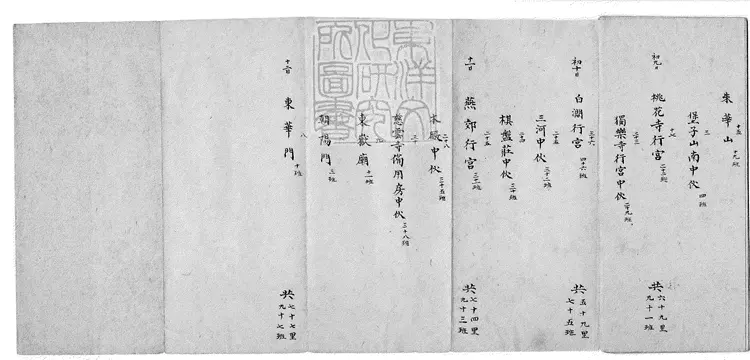 十五 朱華山 十九班
三 堡子山南中伙 四班
初九日 十七 桃花寺行宮 二十三班 共六十九里
九十一班
二十三 獨樂寺行宮中伙 二十九班
初十日 三十六 白澗行宮 四十六班 共五十九里
七十五班
二十五 三河中伙 三十二班
二十四 棋盤莊中伙 三十班
十一日 二十五 燕郊行宮 三十一班 共七十四里
九十三班
二十八 本殿中伙 三十五班
三十 慈雲寺備用房中伙 三十八班
九 東嶽廟 十一班
朝陽門 三班
十二日 八 東華門 十班 共七十七里
九十七班
東洋文
化研究
所圖書